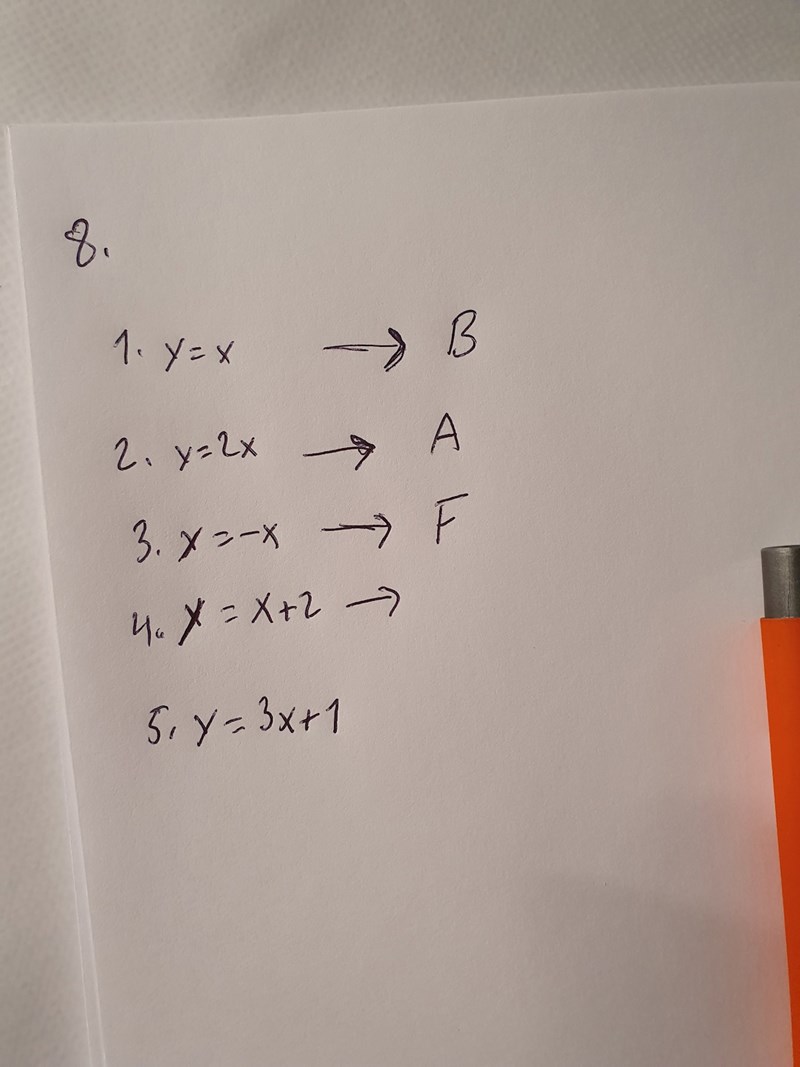 8.
1. y=x → B
2. y=2x → A
3. y=-x → F
4. y=x+2 →
5. y=3x+1